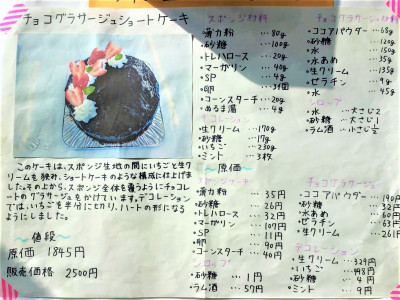 チョコグラサージュショートケーキ
このケーキは、スポンジ生地の間にいちごと生クリ
ームを挟み、ショートケーキのような構成に仕上げま
した。その上から、スポンジ全体を覆うようにチョコレ
ートのグラサージュをかけています。デコレーション
では、いちごを半分にカットし、ハートの形になる
ようにしました。
〜値段〜
原価 1845円
販売価格 2500円
スポンジ材料
・薄力粉 … 80g
・砂糖 … 100g
・トレハロース … 20g
・マーガリン
・SP
・卵 … 3個
・コーンスターチ … 20g
・ぬるま湯
デコレーション
・生クリーム … 170g
・砂糖 … 17g
・いちご
・ミント … 3枚
チョコグラサージュ材料
・ココアパウダー … 68g
・砂糖 … 120g
・水 … 150g
・水あめ … 35g
・生クリーム … 135g
・ゼラチン … 9g
・水 … 45g
シロップ
・水 … 大さじ2
・砂糖 … 大さじ1
・ラム酒
〜原価〜
・薄力粉 … 35円
・砂糖 … 26円
・トレハロース … 32円
・マーガリン … 107円
・SP
・卵 … 90円
・コーンスターチ … 40円
シロップ
・砂糖 … 1円
・ラム酒 … 57円
チョコグラサージュ
・ココアパウダー … 190円
・砂糖 … 32円
・水あめ
・ゼラチン … 63円
・生クリーム … 261円
デコレーション
・生クリーム … 329円
・いちご
・砂糖 … 4円
・ミント … 9円